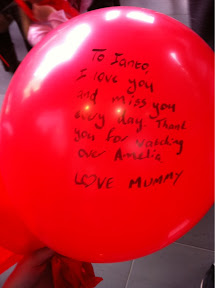 To Ianto,
I love you
and miss you
every day. Thank
you for watching
over Amelia
LOVE MUMMY